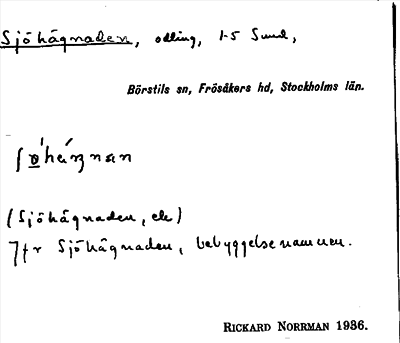 Sjöhägnaden, odling, 1-5 Sund,
Börstils sn, Frösåkers hd, Stockholms län.
(Sjöhägnaden, ele)
Jfr Sjöhägnaden, bebyggelsenamnen.
RICKARD NORRMAN 1936.